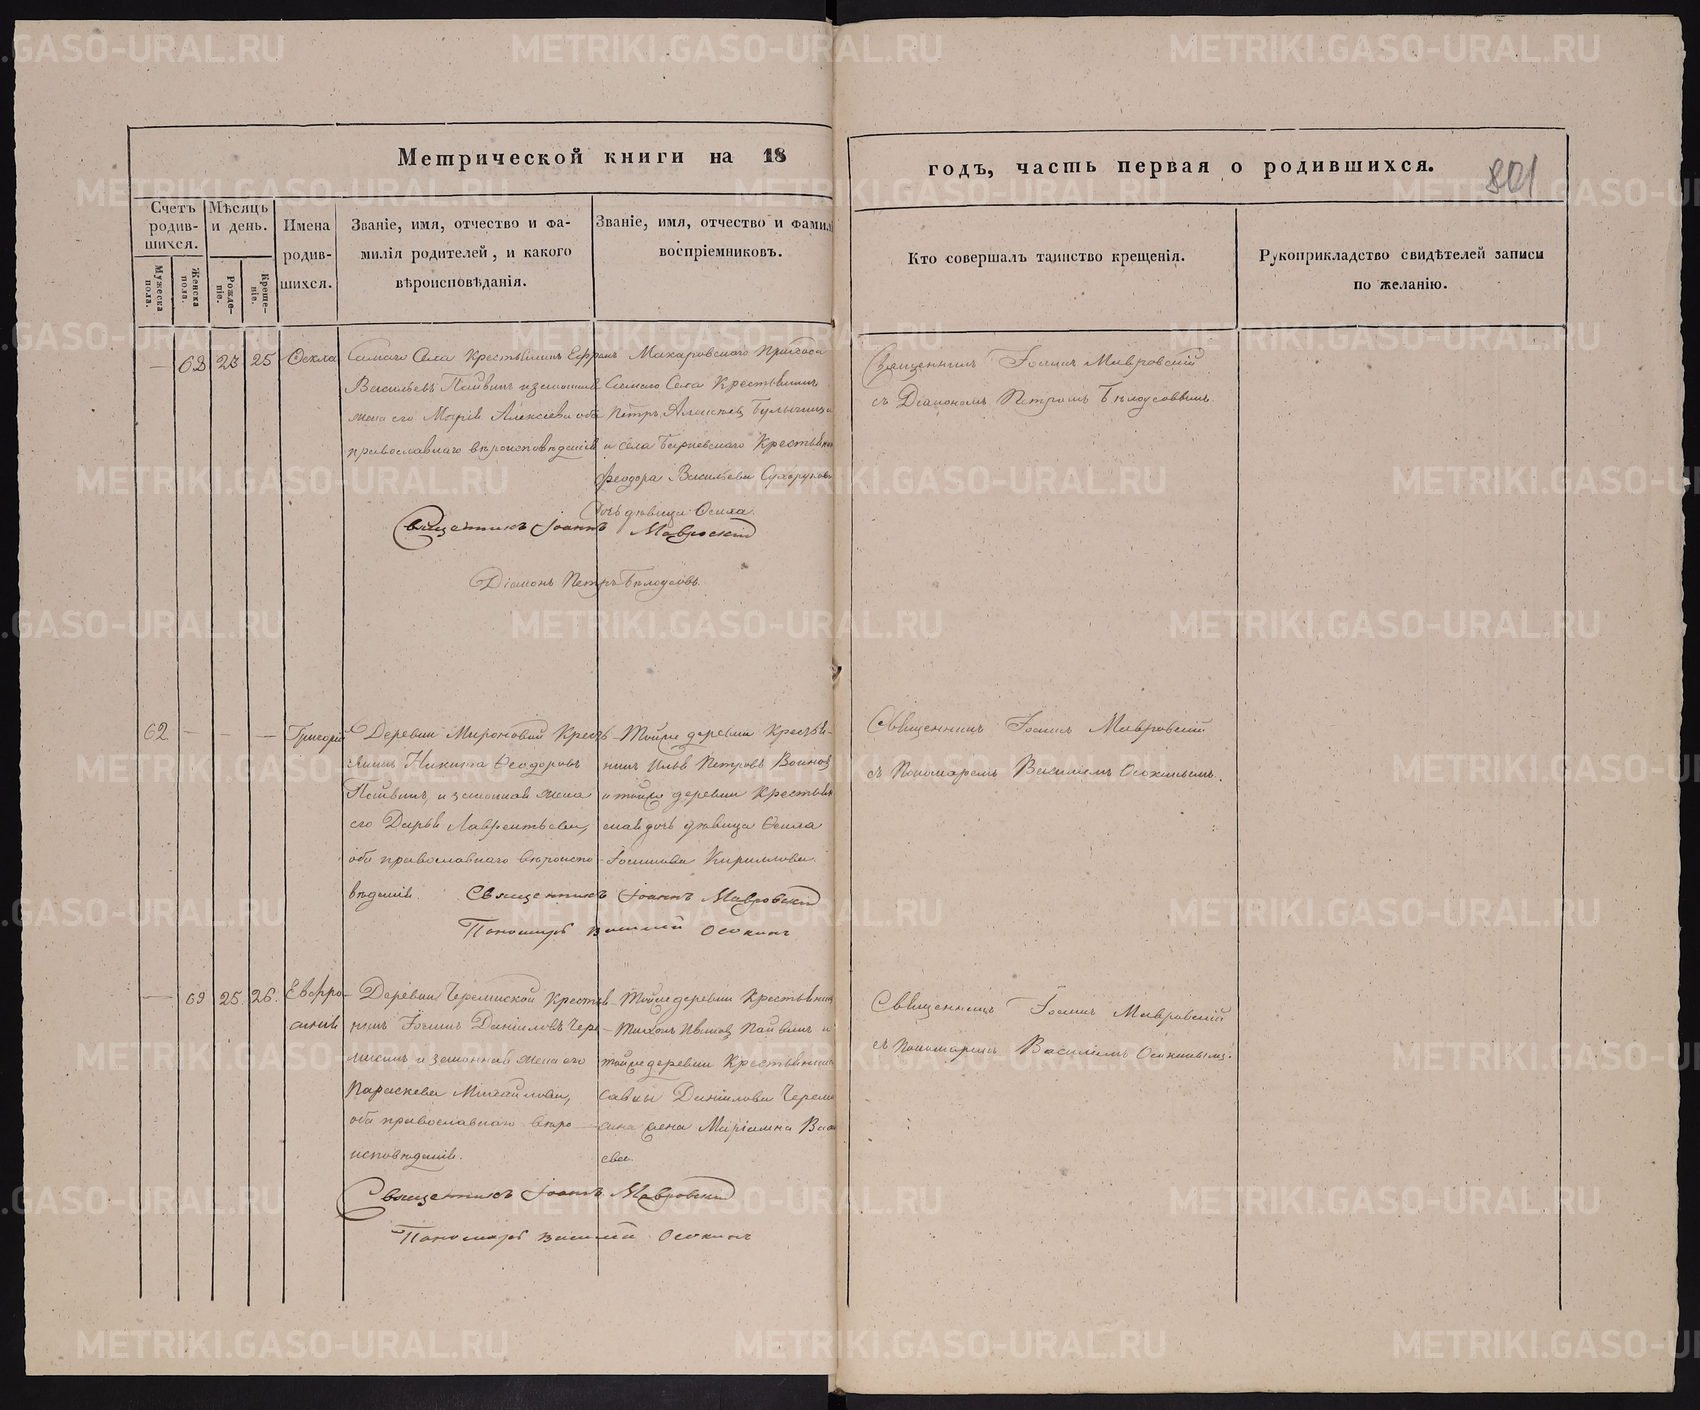 Метрической книги на 18
годъ, часть первая о родившихся.
801
Счетъ родившихся.
Мужеска пола.
Женска пола.
Мѣсяцъ и день.
Рожденіе.
Крещеніе.
Имена родившихся.
Званіе, имя, отчество и фамилія родителей, и какого вѣроисповѣданія.
Званіе, имя, отчество и фамил
воспріемниковъ.
Кто совершалъ таинство крещенія.
Рукоприкладство свидѣтелей записи по желанію.
— 68 23 25 Ѳекла
Села Крестьянинъ
Васильевъ Пайвинъ и законная
жена его Марія Алексіева оба
православнаго вѣроисповѣданія
Макаровскаго
Села Крестьянинъ
Петръ Алексіевъ
и села Крестьянина
Феодора Васильева
дочь дѣвица Ѳекла.
Священникъ Іоаннъ Мавровскій
Діаконъ Петръ Бѣлоусовъ.
Священникъ Іоаннъ Мавровскій
съ Діакономъ Петромъ Бѣлоусовымъ
62 — — — Григорій
Деревни Мироновой Кресть
янинъ Никита Ѳеодоровъ
Пайвинъ, и законная жена
его Дарья Лаврентьева,
оба православнаго вѣроиспо
вѣданія.
Тойже деревни Крестья-
нинъ Илья Петровъ Воиновъ
и тойже деревни Крестьян
ская дочь дѣвица Ѳекла
Іоаннова Кириллова.
Священникъ Іоаннъ Мавровскій
Пономарь Василій Осокинъ
Священникъ Іоаннъ Мавровскій
съ Пономаремъ Василіемъ Осокинымъ.
— 69 25. 26. Евфро-
синія
Деревни Черемиской Крестья
нинъ Іоаннъ Даніиловъ Чере
мисинъ и законная жена его
Параскева Михайлова,
оба православнаго вѣро
исповѣданія.
Тойже деревни Крестьянинъ
Тихонъ Ивановъ Пайвинъ и
тойже деревни Крестьянина
Саввы Данилова Череми
сина жена Маріамна Ва
ева.
Священникъ Іоаннъ Мавровскій
Пономарь Василій Осокинъ
Священникъ Іоаннъ Мавровскій
съ Пономаремъ Василіемъ Осокинымъ.
METRIKI.GASO-URAL.RU